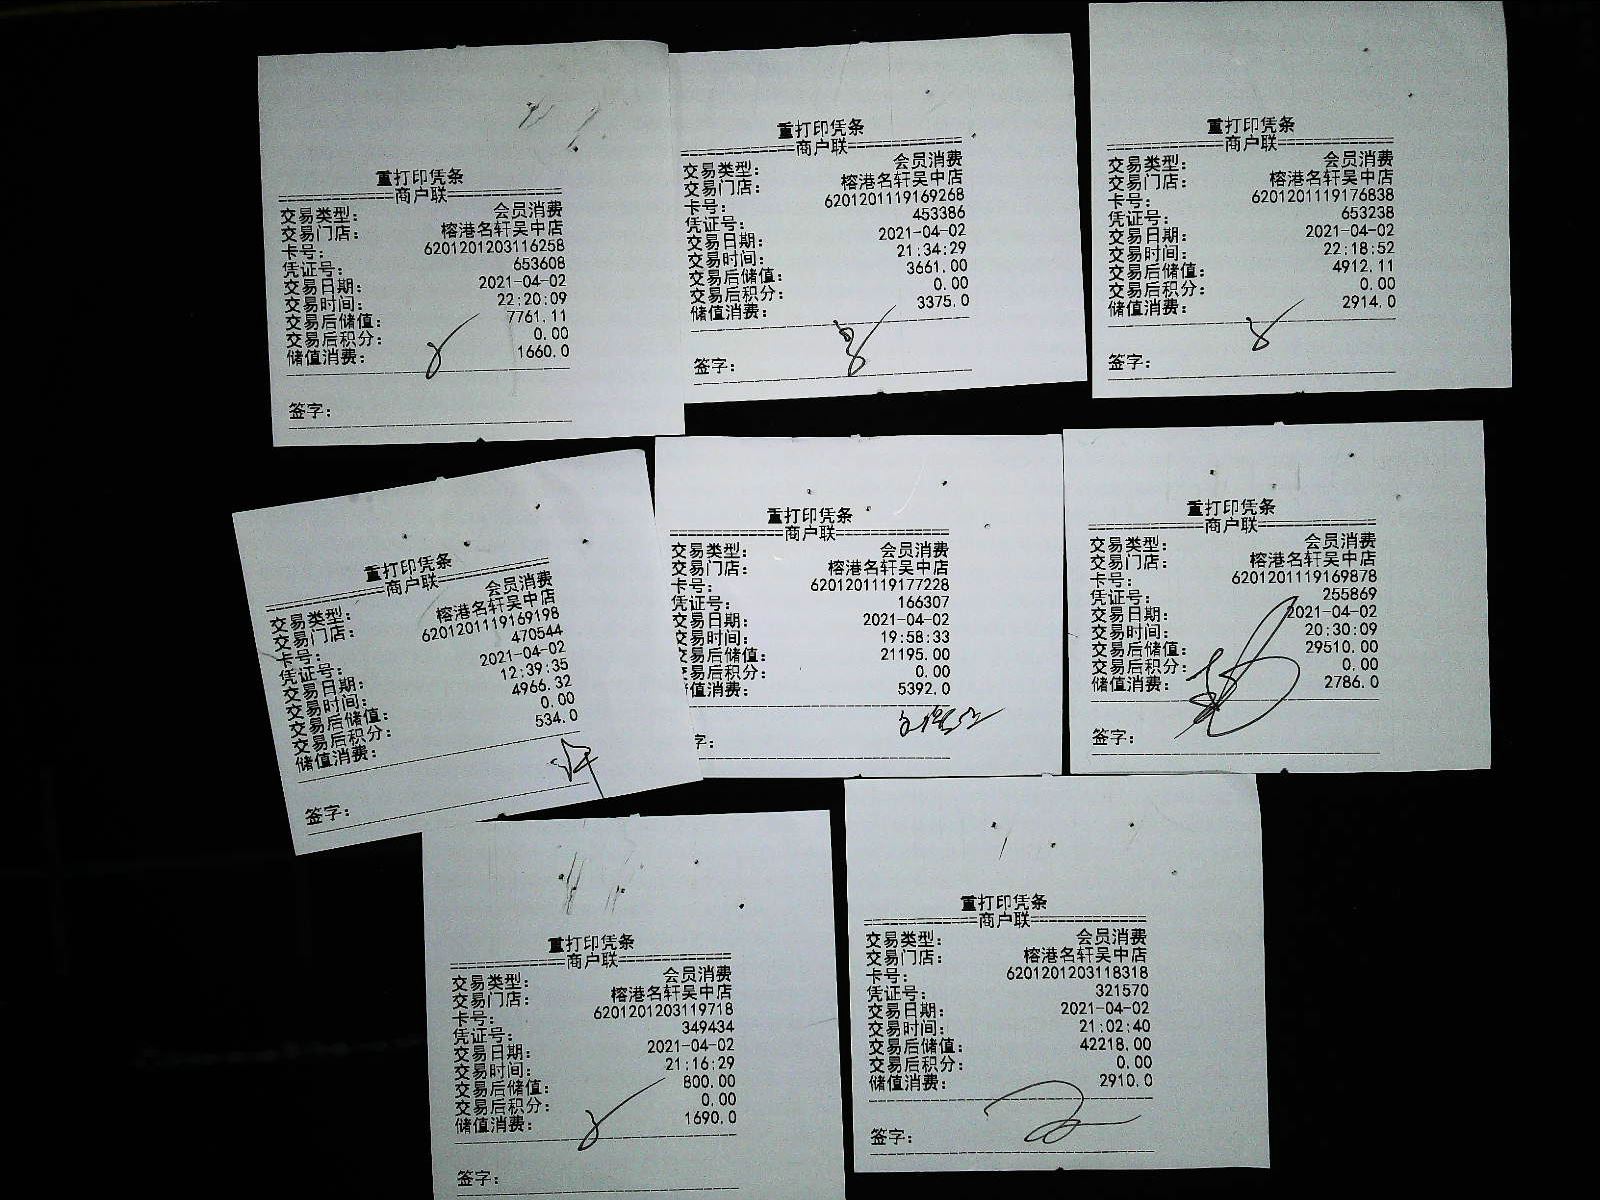 重打印凭条
==========商户联==========
交易类型： 会员消费
交易门店： 榕港名轩吴中店
卡号： 6201201203116258
凭证号： 653608
交易日期： 2021-04-02
交易时间： 22:20:09
交易后储值： 7761.11
交易后积分： 0.00
储值消费： 1660.0
签字：
重打印凭条
==========商户联==========
交易类型： 会员消费
交易门店： 榕港名轩吴中店
卡号： 6201201119169268
凭证号： 453386
交易日期： 2021-04-02
交易时间： 21:34:29
交易后储值： 3661.00
交易后积分： 0.00
储值消费： 3375.0
签字：
重打印凭条
==========商户联==========
交易类型： 会员消费
交易门店： 榕港名轩吴中店
卡号： 6201201119176838
凭证号： 653238
交易日期： 2021-04-02
交易时间： 22:18:52
交易后储值： 4912.11
交易后积分： 0.00
储值消费： 2914.0
签字：
重打印凭条
==========商户联==========
交易类型： 会员消费
交易门店： 榕港名轩吴中店
卡号： 6201201119169198
凭证号： 470544
交易日期： 2021-04-02
交易时间： 12:39:35
交易后储值： 4966.32
交易后积分： 0.00
储值消费： 534.0
签字：
重打印凭条
==========商户联==========
交易类型： 会员消费
交易门店： 榕港名轩吴中店
卡号： 6201201119177228
凭证号： 166307
交易日期： 2021-04-02
交易时间： 19:58:33
交易后储值： 21195.00
交易后积分： 0.00
值消费： 5392.0
字：
重打印凭条
==========商户联==========
交易类型： 会员消费
交易门店： 榕港名轩吴中店
卡号： 6201201119169878
凭证号： 255869
交易日期： 2021-04-02
交易时间： 20:30:09
交易后储值： 29510.00
交易后积分： 0.00
储值消费： 2786.0
签字：
重打印凭条
==========商户联==========
交易类型： 会员消费
交易门店： 榕港名轩吴中店
卡号： 6201201203119718
凭证号： 349434
交易日期： 2021-04-02
交易时间： 21:16:29
交易后储值： 800.00
交易后积分： 0.00
储值消费： 1690.0
签字：
重打印凭条
==========商户联==========
交易类型： 会员消费
交易门店： 榕港名轩吴中店
卡号： 6201201203118318
凭证号： 321570
交易日期： 2021-04-02
交易时间： 21:02:40
交易后储值： 42218.00
交易后积分： 0.00
储值消费： 2910.0
签字：